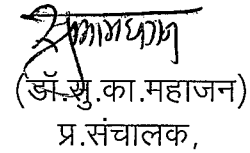 (डॉ.सु.का.महाजन)
प्र.संचालक,